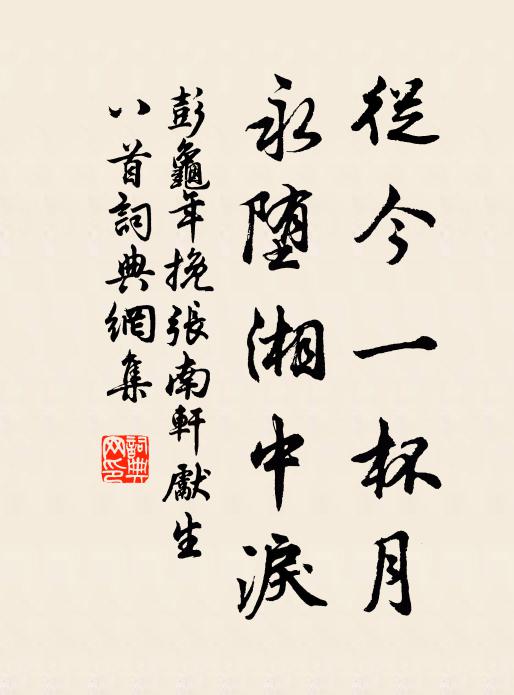 從今一杯月
永墮湘中淚
彭龜年挽張南軒獻生
八首詞典網集
詞典网印